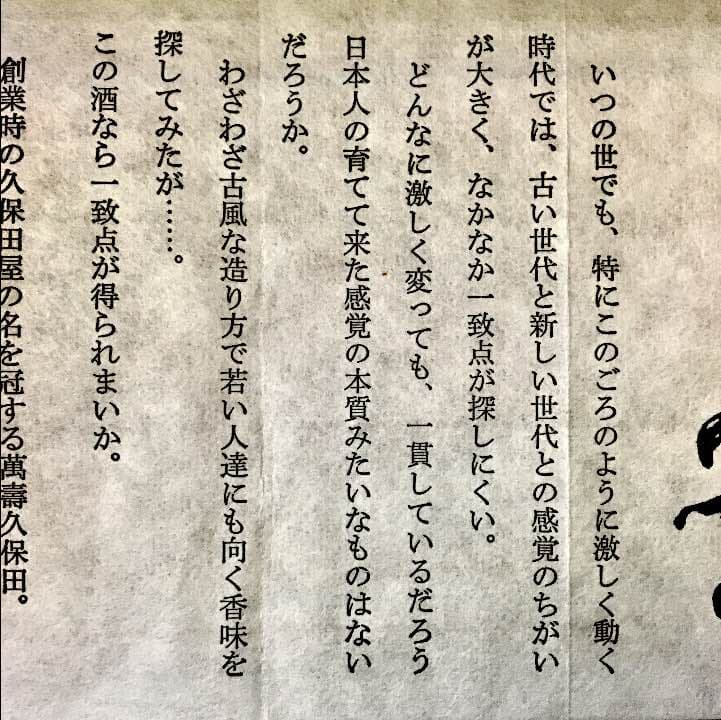 いつの世でも、特にこのごろのように激しく動く
時代では、古い世代と新しい世代との感覚のちがい
が大きく、なかなか一致点が探しにくい。
どんなに激しく変っても、一貫しているだろう
日本人の育てて来た感覚の本質みたいなものはない
だろうか。
わざわざ古風な造り方で若い人達にも向く香味を
探してみたが……。
この酒なら一致点が得られまいか。
創業時の久保田屋の名を冠する萬壽久保田。